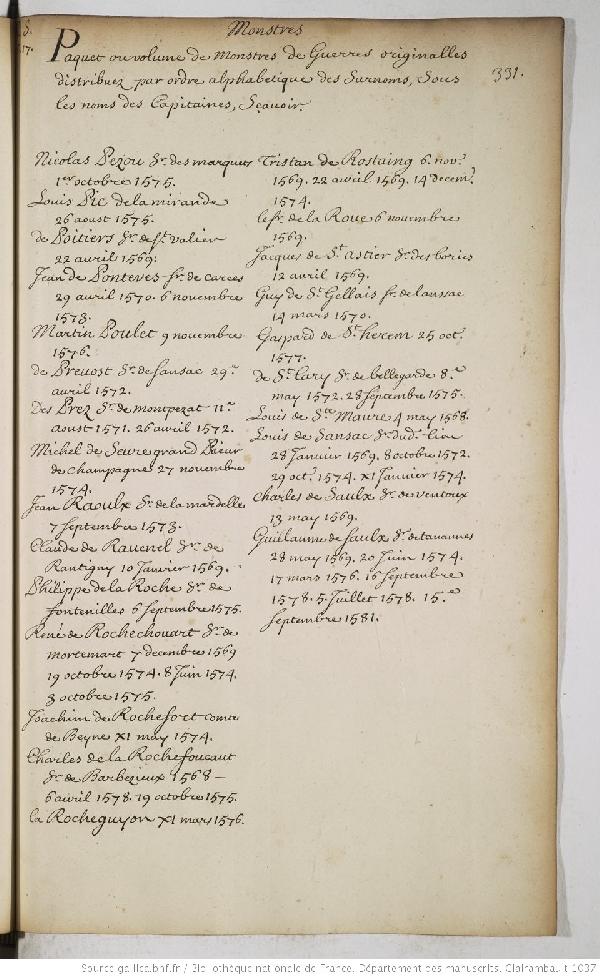 Monstres
Paquet ou volume de Monstres de Guerres originalles
distribuez par ordre alphabetique des Surnoms, Sous
les noms des Capitaines, Sçavoir.
331.
Nicolas Pezou Sr. des marques
1er octobre 1575.
Louis Pic de la mirande
26 aoust 1575.
de Poitiers Sr. de St. valier
22 avril 1569.
Jean de Ponteves Sr. de carces
29 avril 1570. 6 novembre
1573.
Martin Poulet 9 novembre
1576.
de Prevost Sr. de Sansac 29.e
avril 1572.
Des Prez Sr. de montpezat 11.e
aoust 1571. 26 avril 1572.
Michel de Seure grand Prieur
de champagne 27 novembre
1574.
Jean Raoulx Sr. de la mardelle
7 septembre 1573.
Claude de Ravenel Sr. de
Rantigny 10 Janvier 1569.
Philippe de la Roche Sr. de
fontenilles 6 septembre 1575.
René de Rochechouart Sr. de
mortemart 7 decembre 1569
19 octobre 1574. 8 Juin 1574.
3 octobre 1575.
Joachim de Rochefort
de Beyne XI may 1574.
Charles de la Rochefoucaut
Sr. de Barbezieux 1568 –
6 avril 1578. 19 octobre 1575.
la Rocheguyon XI mars 1576.
Tristan de Rostaing 6 nov.e
1569. 22 avril 1569. 14 decem.e
1574.
le Sr. de la Roue 6 novembre
1569.
Jacques de St. astier Sr. des bories
12 avril 1569.
Guy de St. Gellais Sr. de lansac
14 mars 1570.
Gaspard de St. herem 25 oct.e
1577.
de St. lary Sr. de bellegarde 8.e
may 1572. 28 septembre 1575.
Louis de Ste. Maure 4 may 1568.
Louis de Sansac Sr. dud. lieu
28 Janvier 1569. 8 octobre 1572.
29 oct.e 1574. XI Janvier 1574.
Charles de Saulx Sr. de ventoux
13 may 1569.
Guillaume de Saulx Sr. de tavannes
28 may 1569. 20 Juin 1574.
17 mars 1576. 16 septembre
1578. 5. Juillet 1578. 15.e
septembre 1581.
Source gallica.bnf.fr / Bibliothèque nationale de France. Département des manuscrits. Clairambault 1037